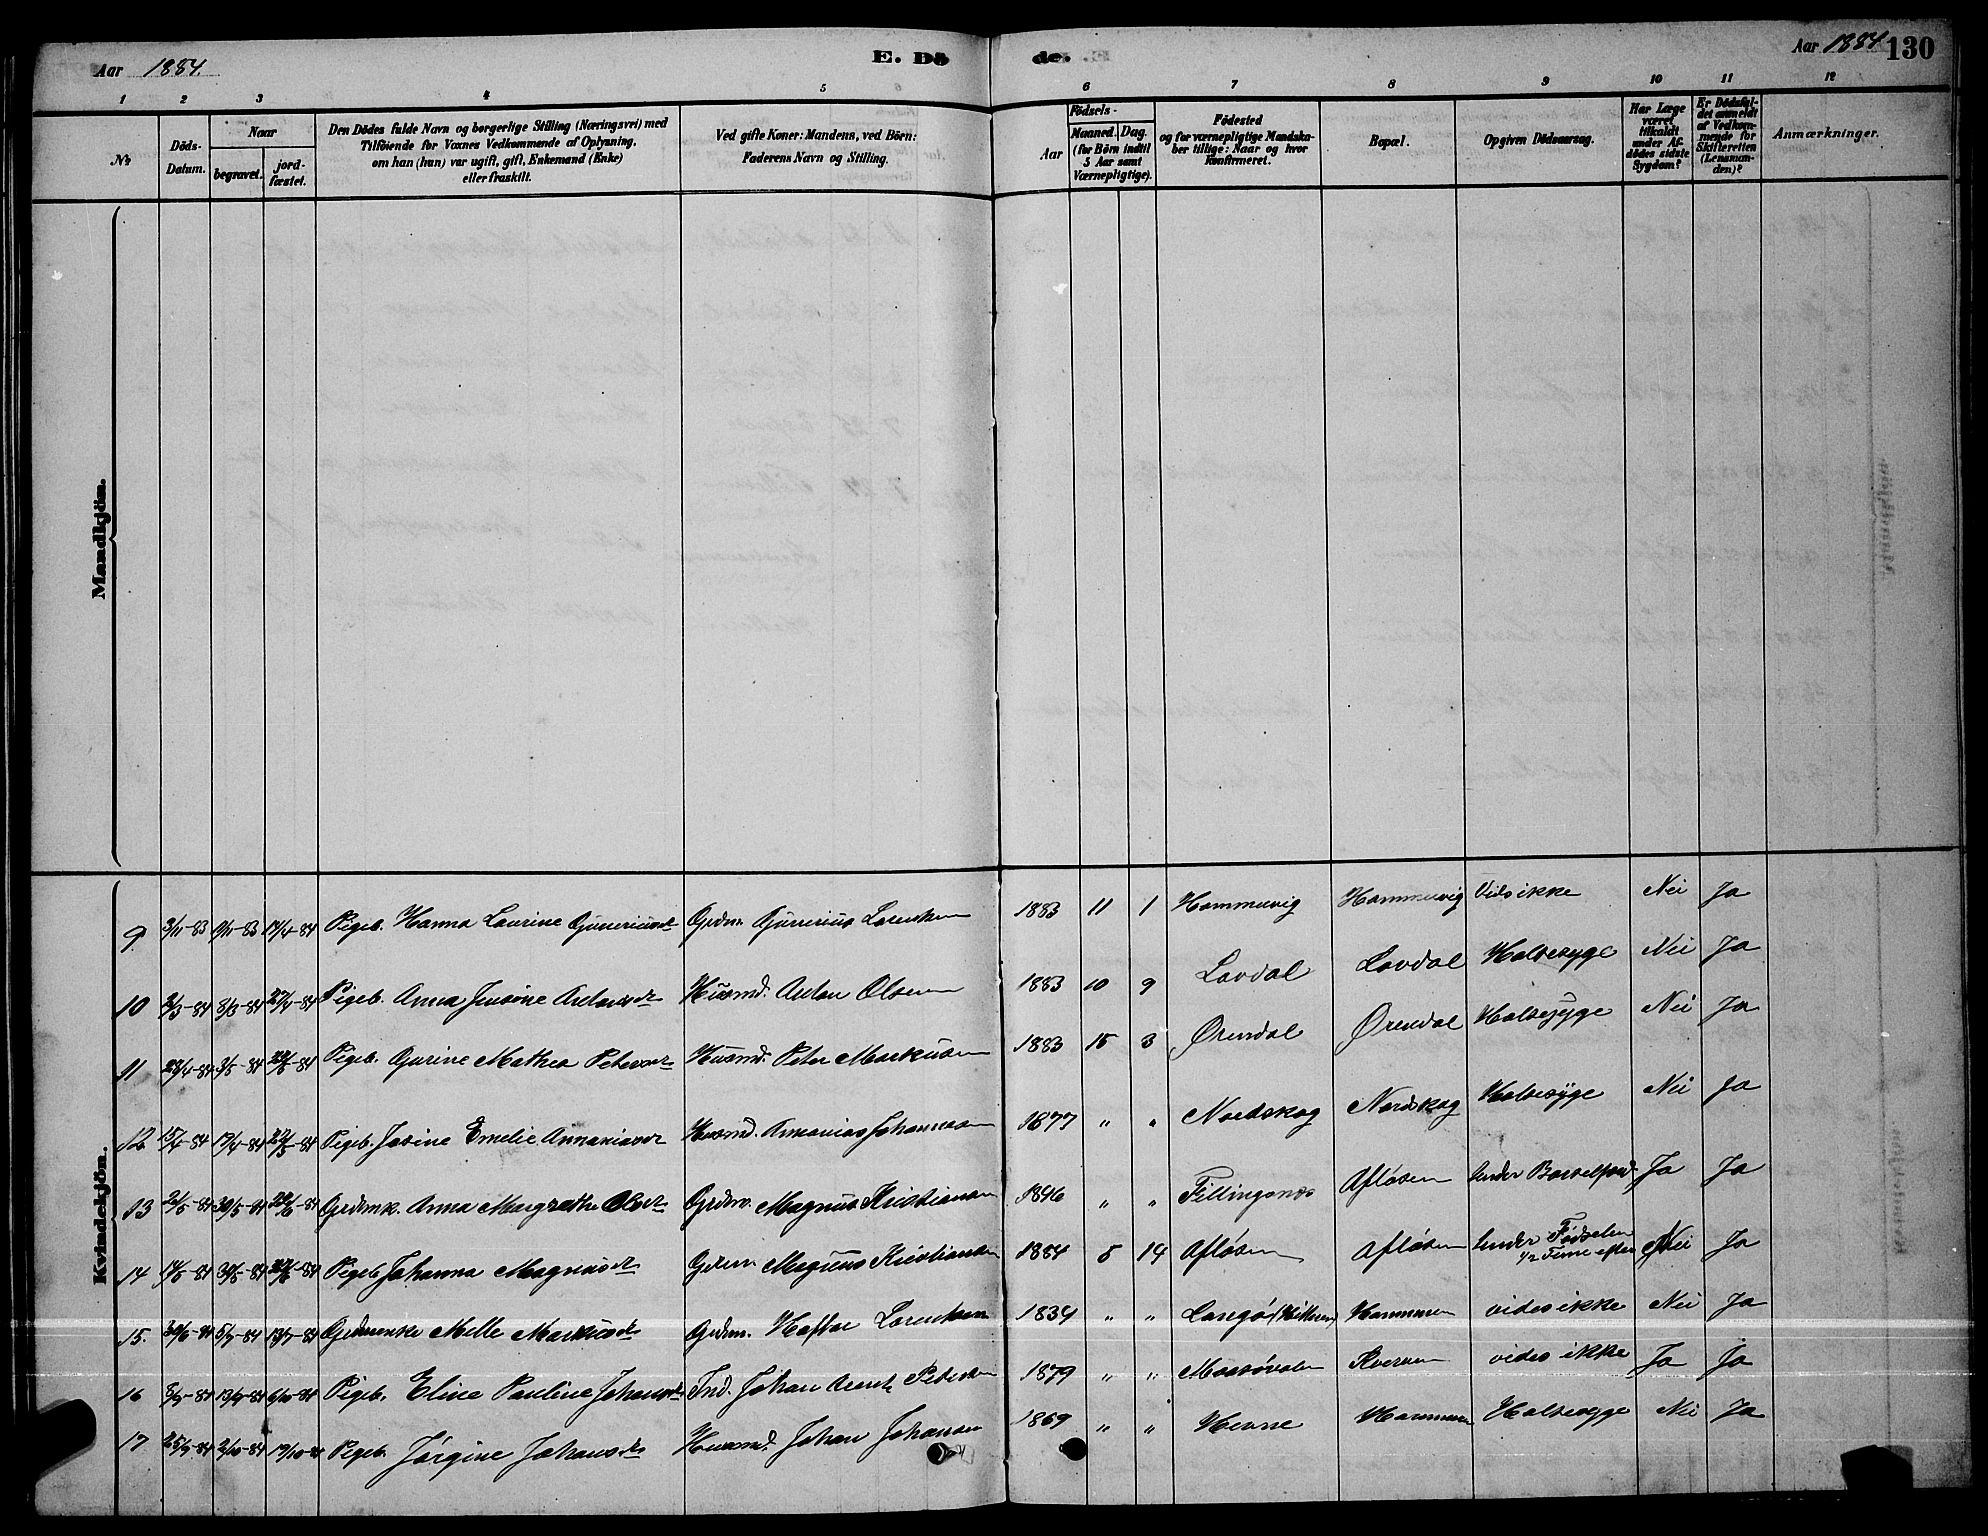 Aar 1884.
E. Dö
de.
Aar 1884 130
1 2 3 4 5 6 7 8 9 10 11 12
No
Döds-
Datum.
Naar
begravet.
jord-
fæstet.
Den Dödes fulde Navn og borgerlige Stilling (Næringsvei) med
Tilföiende for Voxnes Vedkommende af Oplysning,
om han (hun) var ugift, gift, Enkemand (Enke)
eller fraskilt.
Ved gifte Koner: Mandens, ved Börn:
Faderens Navn og Stilling.
Födsels-
Aar
Maaned. Dag.
(for Börn indtil
5 Aar samt
Værnepligtige).
Födested
og for værnepligtige Mandska-
ber tillige: Naar og hvor
konfirmeret.
Bopæl.
Opgiven Dödsaarsag.
Har Læge
været
tilkaldt
under Af-
dödes sidste
Sygdom?
Er Dödsfal-
det anmeldt
af Vedkom-
mende for
Skifteretten
(Lensman-
den)?
Anmærkninger.
Mandkjön.
Kvindekjön.
9. 3/11-83 11/11-83 14/4-84 Pigeb. Hanna Laurine Guneriusdr Grdm. Gunerius Lorentsen 1883 11 1 Hammervig Hammervig Vides ikke Nei Ja
10 2/3-84 3/3-84 27/4-84 Pigeb. Anna Jensine Antonsdr Husmd. Anton Olsen 1883 10 9 Lovdal Lovdal Halsesyge Nei Ja
11 Pigeb. Gurine Mathea Petersdr Husmd. Peter Markusen 1883 3 Ørendal Ørendal Halsesyge Nei Ja
12 15/4-84 17/4-84 22/5-84 Pigeb. Josine Emelie Annaniasdr Husmd. Annanias Johannesen 1877 " " Nordskog Nordskog Halsesyge Nei Ja
13 Grdmk. Anna Margrethe Olsdr Grdm. Magnus Kristiansen 1846 " " Fillingsnes Afløsen Under Barselfærd Ja Ja
14 14/5-84 Pigeb. Johanna Magnusdr Grdm. Magnus Kristiansen 1884 5 14 Afløsen Afløsen Under Fødselen
1/2 Time efter Nei Ja
15. 5/7-84 13/7-84 Grdmenke Melle Markusdr Grdm. Haftor Lorentsen 1834 " " (Hitteren) Hammeren vides ikke Nei Ja
16 13/9-84 Pigeb. Eline Pauline Johansdr Ind. Johan Arent Petersen 1879 " " Maasøvalen Kvernen vides ikke Ja Ja
17 25/9-84 2/10-84 19/10-84 Pigeb. Jørgine Johansdr Husmd. Johan Johansen 1869 " " Hevne Hammeren Halsesyge Nei Ja